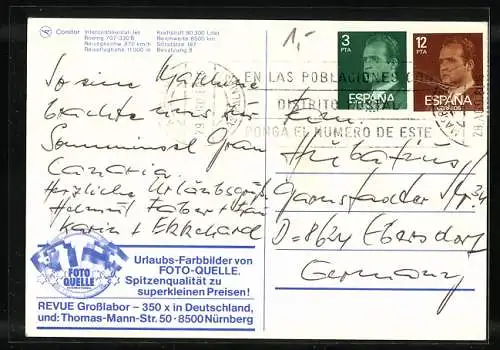 Condor
Intercontinental-Jet
Boeing 707/330 B
Reisegeschw. 870 km/h
Reiseflughöhe 11000 m
Kraftstoff 90300 Liter
Reichweite 8500 km
Sitzplätze 187
Besatzung 8
1,-
3 PTA
ESPAÑA
12 PTA
ESPAÑA
CORREOS
EN LAS POBLACIONES CON
DISTRITO POSTAL
PONGA EL NUMERO DE ESTE
So eine Maschine
brachte uns zur
Sonneninsel Gran
Canaria.
Herzliche Urlaubsgrüße
Helmut Faber + Frau
Karin + Ekkehard
Hubertus
Str. 34
D=8624 Ebersdorf
Germany
FOTO
QUELLE
Urlaubs-Farbbilder von
FOTO-QUELLE.
Spitzenqualität zu
superkleinen Preisen!
REVUE Großlabor – 350 x in Deutschland,
und: Thomas-Mann-Str. 50 · 8500 Nürnberg